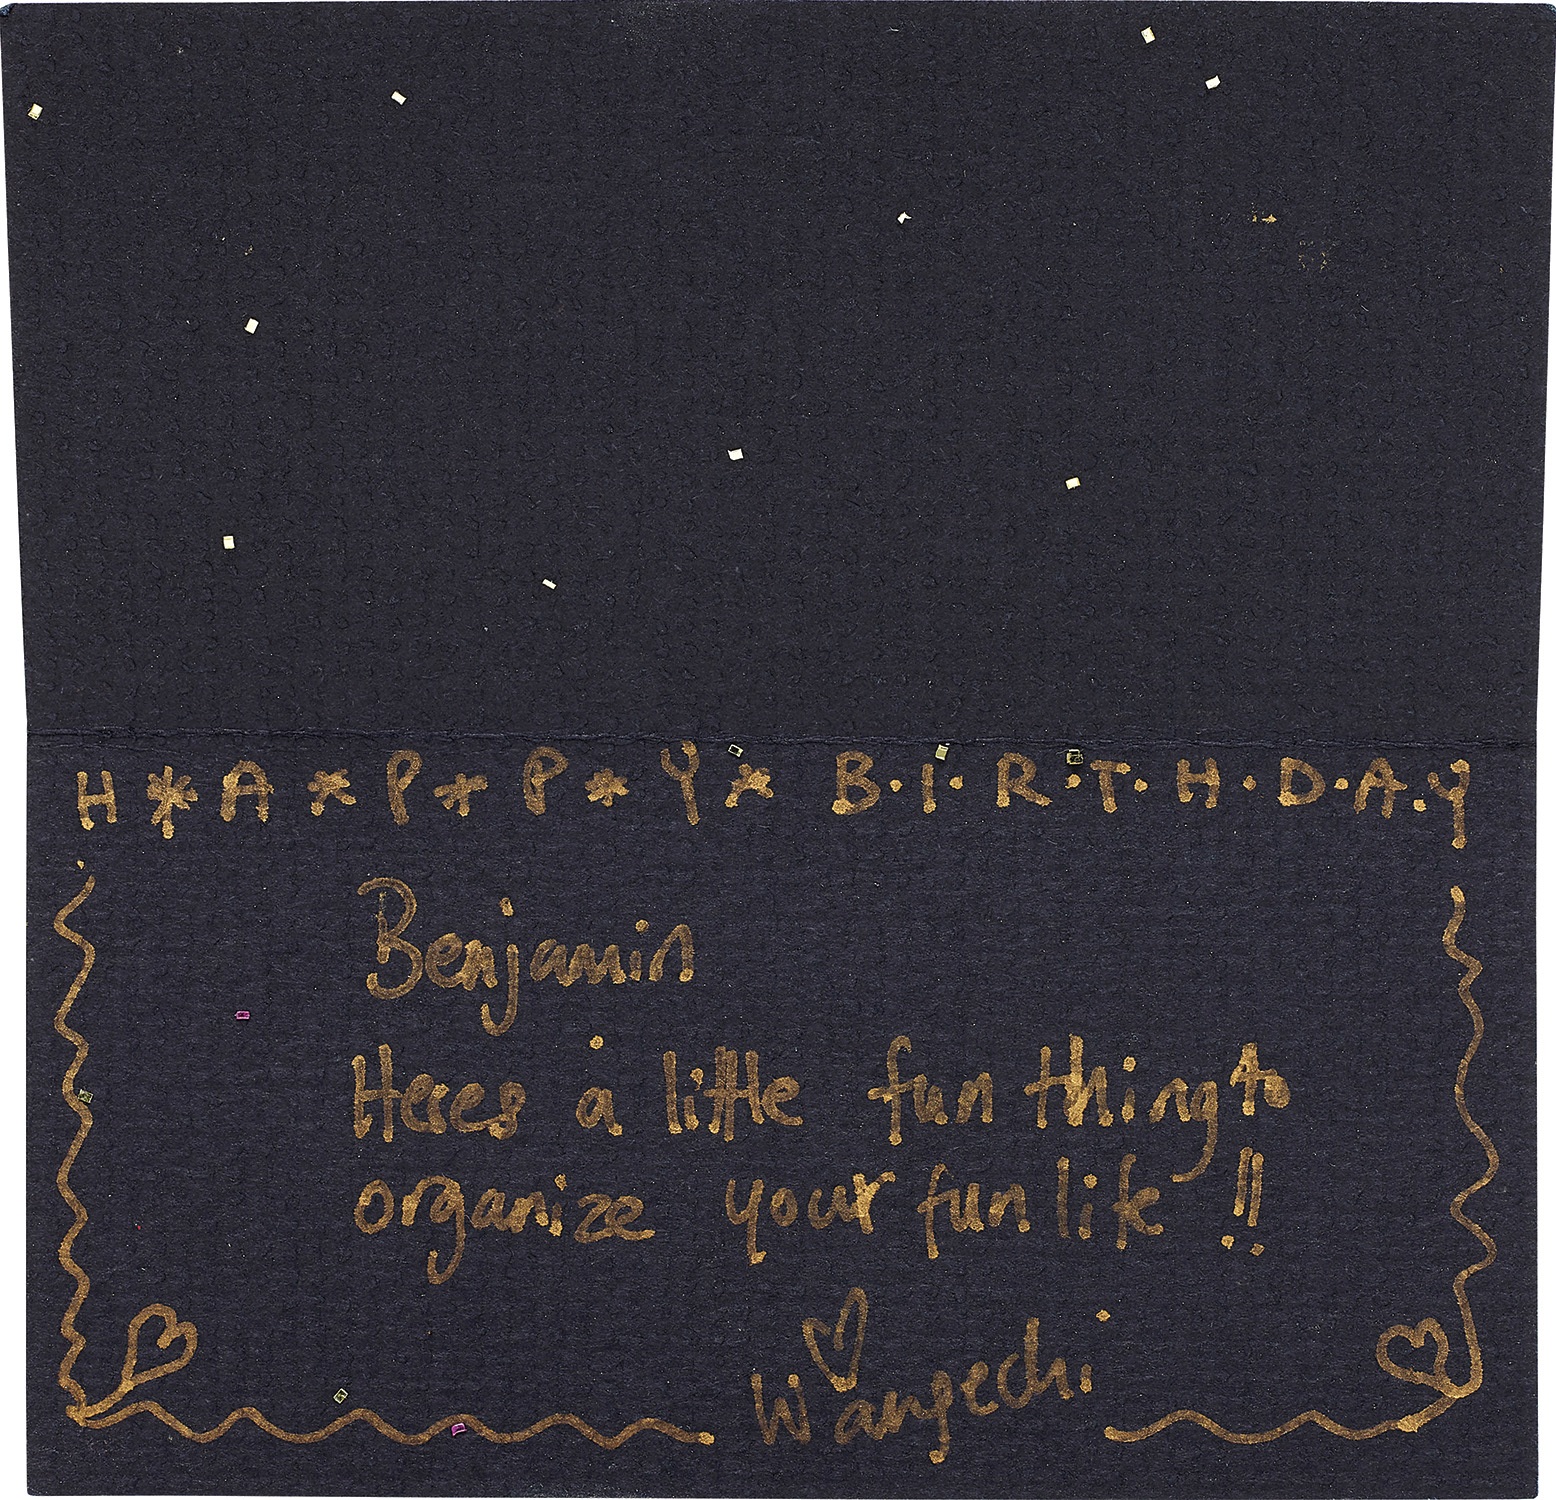 H*A*P*P*Y* B.I.R.T.H.D.A.Y
Benjamin
Heres a little fun thing to
organize your fun life !!
Wangechi